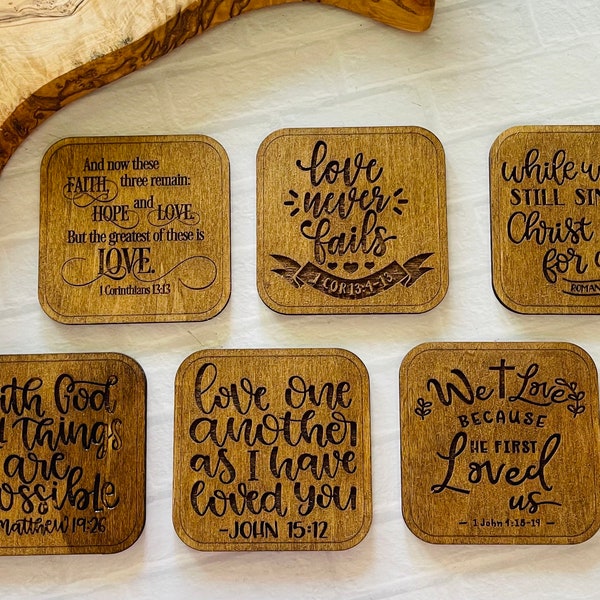 And now these
FAITH three remain:
and
HOPE and LOVE
But the greatest of these is
LOVE.
1 Corinthians 13:13
love
never
fails
1 COR 13:4-13
while w
STILL SIN
Christ
for
ROMAN
ith God
Things
are
ossible
Matthew 19:26
love one
another
as I have
loved you
-JOHN 15:12
We Love
BECAUSE
HE FIRST
Loved
us
- 1 John 4:18-19 -